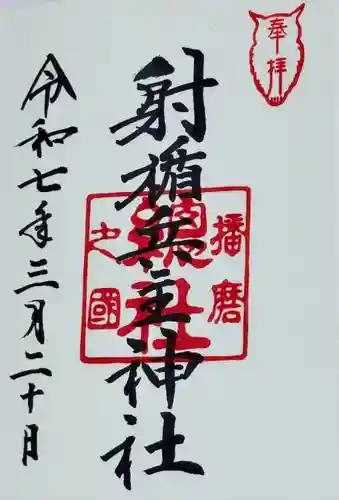 奉拝
射楯兵主神社
播磨
總社
之國
令和七年三月二十日